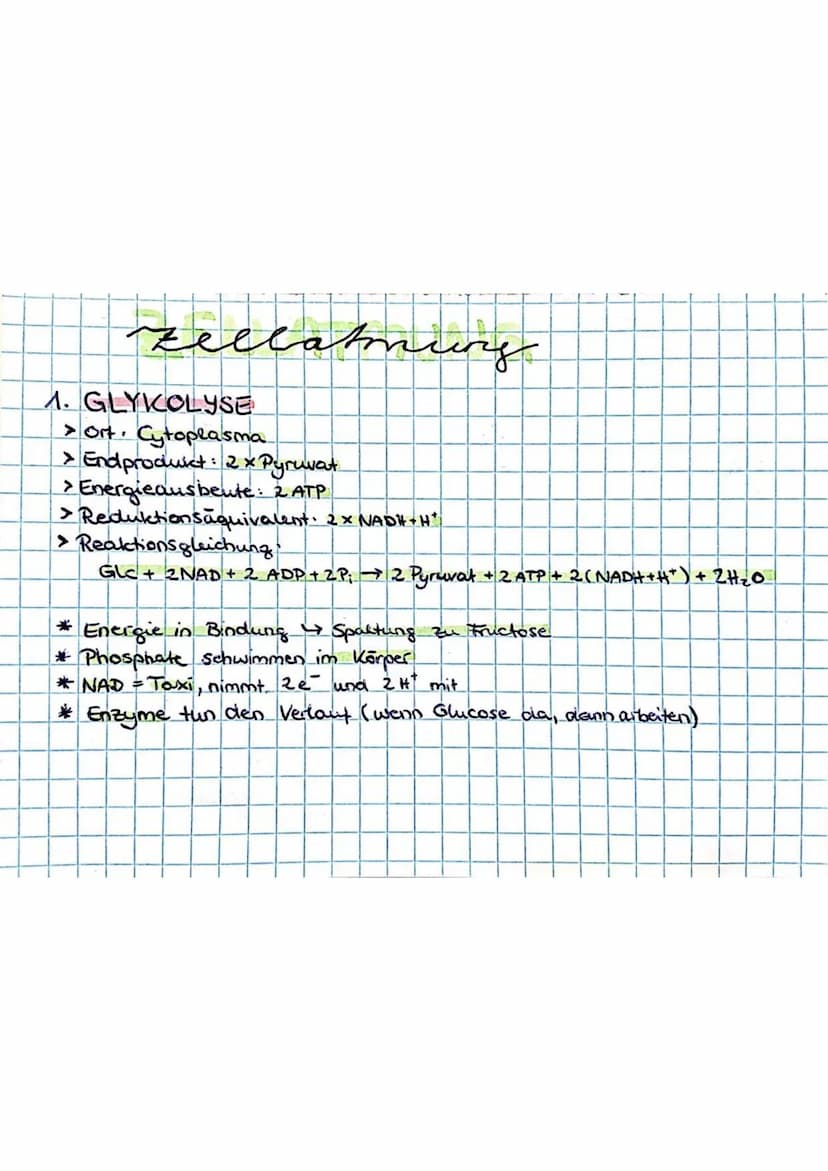 Zellatmung
1. GLYKOLYSE
> Ort: Cytoplasma
> Endprodukt: 2 x Pyruvat
> Energieausbeute: 2 ATP
> Reduktionsäquivalent: 2 x NADH+H⁺
> Reaktionsgleichung:
Glc + 2NAD + 2 ADP + 2Pᵢ → 2 Pyruvat + 2 ATP + 2(NADH+H⁺) + 2H₂O
* Energie in Bindung ↳ Spaltung zu Fructose
* Phosphate schwimmen im Körper
* NAD = Taxi, nimmt 2e⁻ und 2H⁺ mit
* Enzyme tun den Verlauf (wenn Glucose da, dann arbeiten)